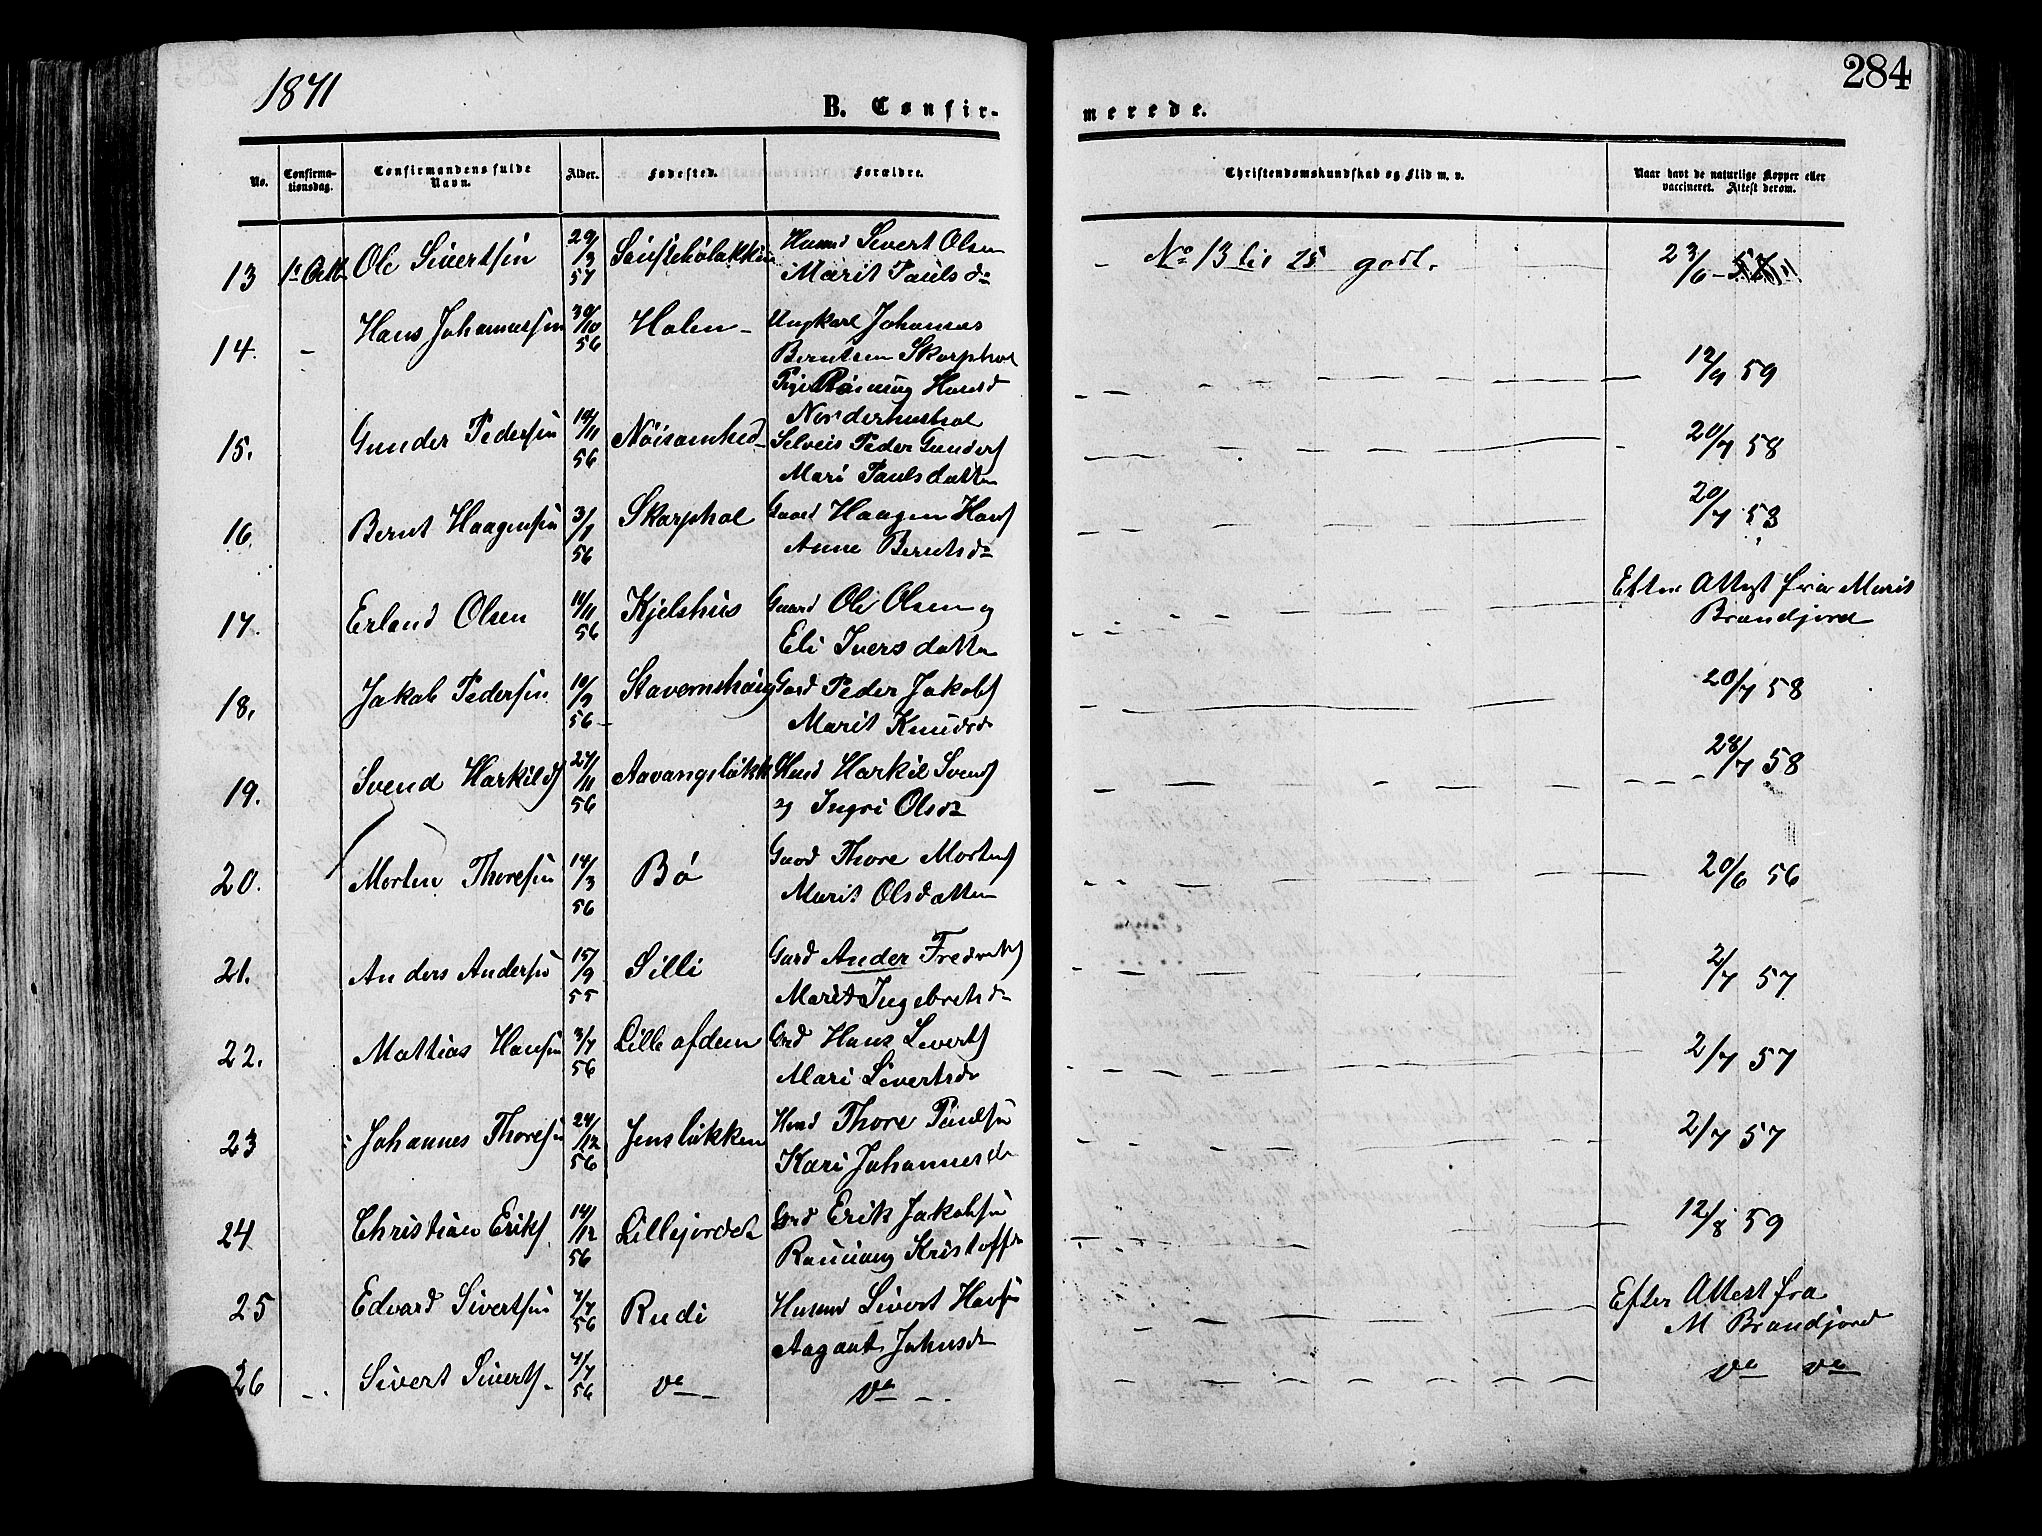 1871
284
B. Confir-
merede.
No.
Confirma-
tionsdag.
Confirmandens fulde
Navn.
Alder.
Fødested.
Forældre.
Christendomskundskab og Flid m. v.
Naar havt de naturlige Kopper eller
vaccineret. Attest derom.
13 1ste Octb Ole Sivertsen 29/3 57 Husmd Sivert Olsen
Marit Paulsdr
No 13 til 25 godt. 23/6
14. - Hans Johannessen 30/10 56 Holen - Ungkarl Johannes
Berntsen Skarphol
Pige Hansd
Norderhushol
12/9 59
15. Gunder Pedersen 14/11 56 Nöisomhed Selveier Peder Gunders
Mari Paulsdatter
20/7 58
16. Bernt Haagensen 3/7 56 Skarphol Gaard Haagen Hans
Anne Berntsdr
20/7 58
17. Erland Olsen 14/11 56 Kjelshus Gaard Ole Olsen og
Eli Iversdatter
Efter Attest fra Marit
Brandjord
18. Jakob Pedersen 10/9 56 - Stavemshaug Gard Peder Jakobs
Marit Knudsdr
20/7 58
19. Svend Harkilds 27/11 56 Aavangsløkk Husmd Harkil Svends
og Ingri Olsdr
28/7 58
20. Morten Thoresen 14/3 56 Bö Gaard Thore Mortens
Marit Olsdatter
20/6 56
21. Anders Andersen 15/9 55 Silli Gard Ander Fredriks
Marit Ingebretsdr
2/7 57
22. Mattias Hansen 3/7 56 Lilleofdem Grd Hans Siverts
Mari Sivertsdr
2/7 57
23 Johannes Thoresen 24/12 56 Jensløkken Hmd Thore Paulsen
Kari Johannesdr
2/7 57
24 Christian Eriks 14/12 56 Lillejordet Grd Erik Jakobsen
Kristoffsdr
12/8 59
25 Edvard Sivertsen 7/7 56 Rudi Husmd Sivert Hans
Aagaat Johnsdr
Efter Attest fra
M Brandjord
26 - Sivert Siverts 7/7 56 Do - Do -
Do Do